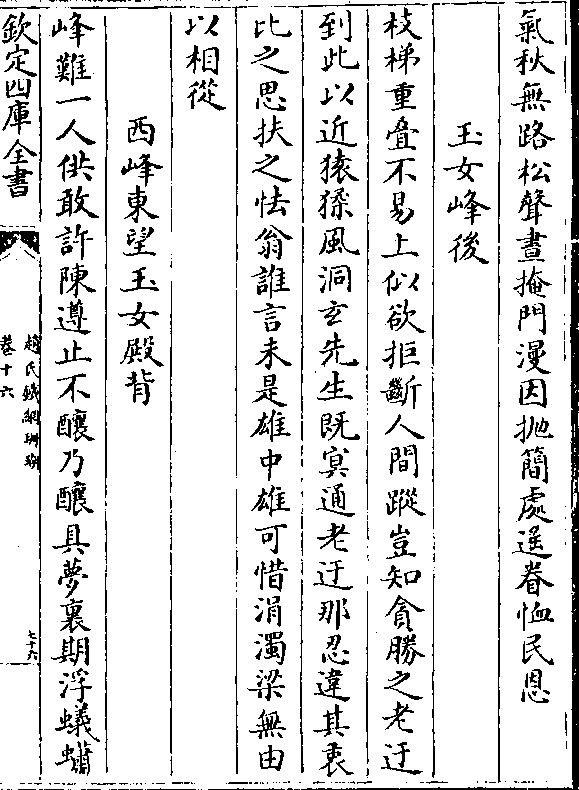 氣秋無路松聲晝掩門漫因抛簡處遥眷恤民恩
玉女峰後
枝梯重疊不易上似欲拒斷人間蹤豈知貪勝之老迂
到此以近猿猱風洞玄先生既冥通老迂那忍違其衷
比之思扶之怯翁誰言未是雄中雄可惜涓濁梁無由
以相從
西峰東望玉女殿背
峰難一人供敢許陳遵止不釀乃釀具夢裏期浮蟻蠨
欽定四庫全書
趙氏鐵網珊瑚
卷十六
七十六